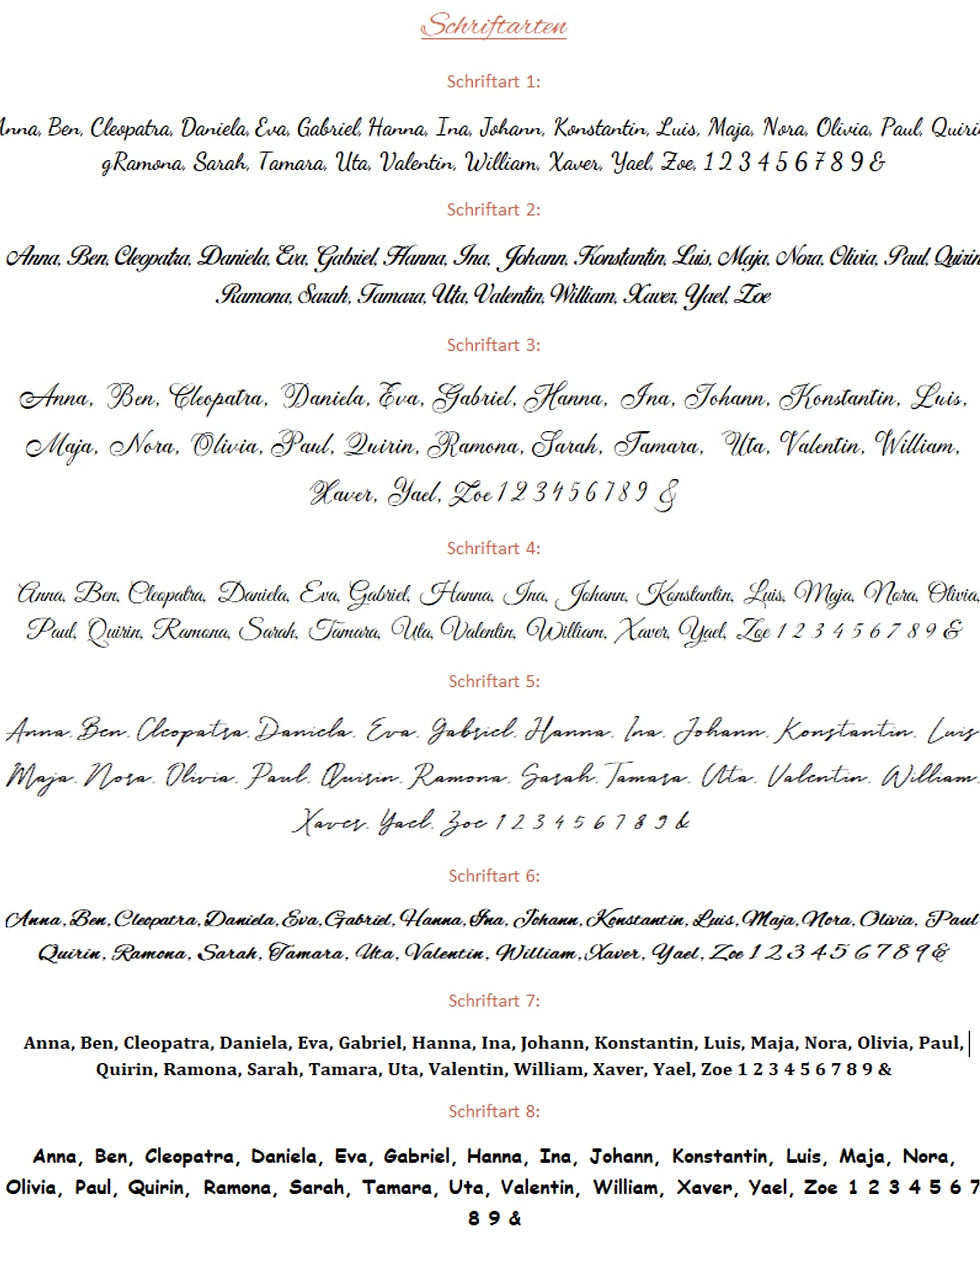 Schriftarten
Schriftart 1:
Anna, Ben, Cleopatra, Daniela, Eva, Gabriel, Hanna, Ina, Johann, Konstantin, Luis, Maja, Nora, Olivia, Paul, Quirin
gRamona, Sarah, Tamara, Uta, Valentin, William, Xaver, Yael, Zoe, 1 2 3 4 5 6 7 8 9 &
Schriftart 2:
Anna, Ben, Cleopatra, Daniela, Eva, Gabriel, Hanna, Ina, Johann, Konstantin, Luis, Maja, Nora, Olivia, Paul, Quirin
Ramona, Sarah, Tamara, Uta, Valentin, William, Xaver, Yael, Zoe
Schriftart 3:
Anna, Ben, Cleopatra, Daniela, Eva, Gabriel, Hanna, Ina, Johann, Konstantin, Luis,
Maja, Nora, Olivia, Paul, Quirin, Ramona, Sarah, Tamara, Uta, Valentin, William,
Xaver, Yael, Zoe 1 2 3 4 5 6 7 8 9 &
Schriftart 4:
Anna, Ben, Cleopatra, Daniela, Eva, Gabriel, Hanna, Ina, Johann, Konstantin, Luis, Maja, Nora, Olivia,
Paul, Quirin, Ramona, Sarah, Tamara, Uta, Valentin, William, Xaver, Yael, Zoe 1 2 3 4 5 6 7 8 9 &
Schriftart 5:
Anna. Ben. Cleopatra. Daniela. Eva. Gabriel. Hanna. Ina. Johann. Konstantin. Luis
Maja. Nora. Olivia. Paul. Quirin. Ramona. Sarah. Tamara. Uta. Valentin. William.
Xaver. Yael. Zoe 1 2 3 4 5 6 7 8 9 &
Schriftart 6:
Anna, Ben, Cleopatra, Daniela, Eva, Gabriel, Hanna, Ina, Johann, Konstantin, Luis, Maja, Nora, Olivia, Paul
Quirin, Ramona, Sarah, Tamara, Uta, Valentin, William, Xaver, Yael, Zoe 1 2 3 4 5 6 7 8 9 &
Schriftart 7:
Anna, Ben, Cleopatra, Daniela, Eva, Gabriel, Hanna, Ina, Johann, Konstantin, Luis, Maja, Nora, Olivia, Paul,
Quirin, Ramona, Sarah, Tamara, Uta, Valentin, William, Xaver, Yael, Zoe 1 2 3 4 5 6 7 8 9 &
Schriftart 8:
Anna, Ben, Cleopatra, Daniela, Eva, Gabriel, Hanna, Ina, Johann, Konstantin, Luis, Maja, Nora,
Olivia, Paul, Quirin, Ramona, Sarah, Tamara, Uta, Valentin, William, Xaver, Yael, Zoe 1 2 3 4 5 6 7
8 9 &